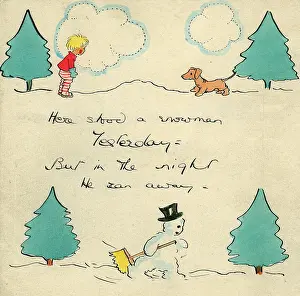 Here stood a snowman
Yesterday -
But in the night
He ran away -